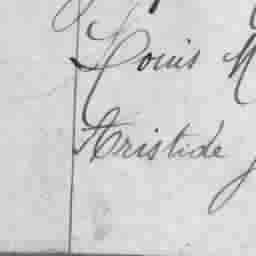 Louis M
Aristide